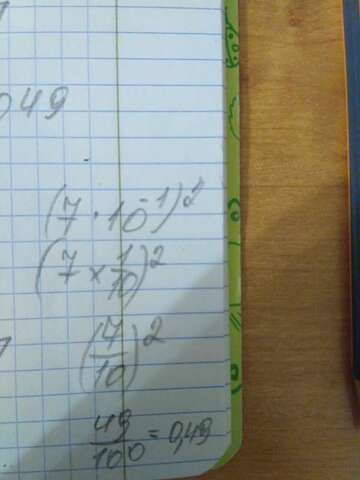 049
(7 · 10⁻¹)²
(7 × 1/10)²
(7/10)²
49/100 = 0,49